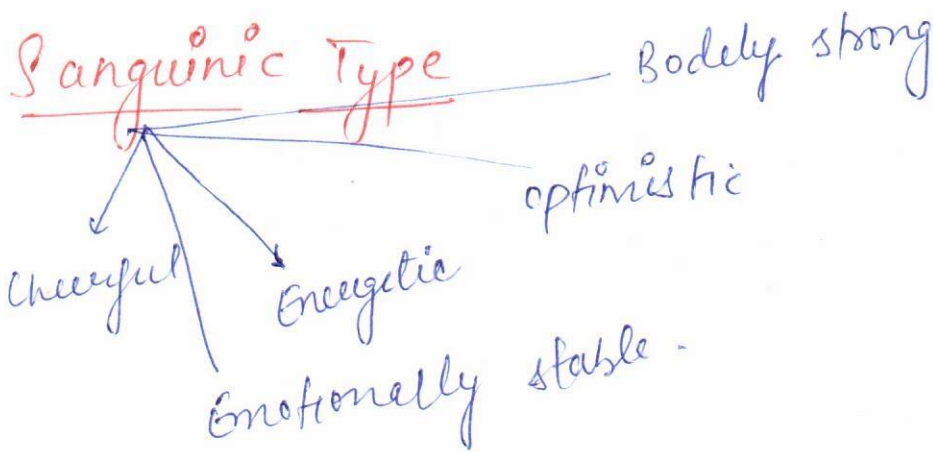 Sanguinic Type
Bodely strong
optimistic
Cheerful
Energetic
Emotionally stable.